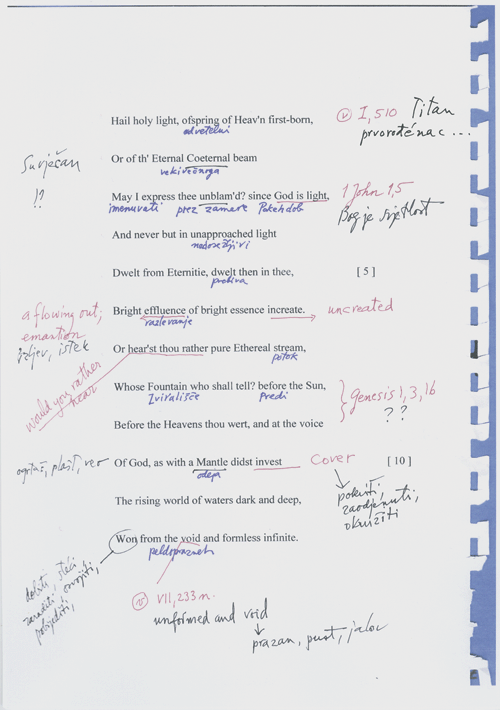 Hail holy light, ofspring of Heav'n first-born,
ⓥ I, 510 Titan
prvorođenac ...
Suvječan
!?
Or of th' Eternal Coeternal beam
May I express thee unblam'd? since God is light,
imenuvati prez zamere
1 John 1,5
Bog je svjetlost
And never but in unapproached light
Dwelt from Eternitie, dwelt then in thee, [ 5 ]
a flowing out;
emantion
izljev, istek
Bright effluence of bright essence increate. uncreated
would you rather
hear
Or hear'st thou rather pure Ethereal stream,
potok
Whose Fountain who shall tell? before the Sun,
Zvirališče predi
Genesis 1, 3, 16
? ?
Before the Heavens thou wert, and at the voice
ogrtač, plašt, veo
Of God, as with a Mantle didst invest Cover [ 10 ]
odeja
pokriti,
zaodjenuti,
okružiti
The rising world of waters dark and deep,
Won from the void and formless infinite.
dobiti, steći
zaraditi, osvojiti,
pobijediti,
ⓥ VII, 233 n.
unformed and void
prazan, pust, jalov